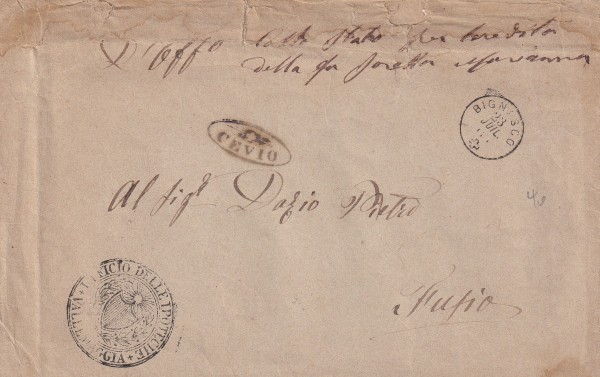 D'Uff° collo Stato per eredità
della fu Joretta Marianna
BIGNASCO
23
JUIL
CEVIO
Al Sigr Dazio Pietro
Fusio
UFFICIO DELLE IPOTECHE
VALLEMAGGIA